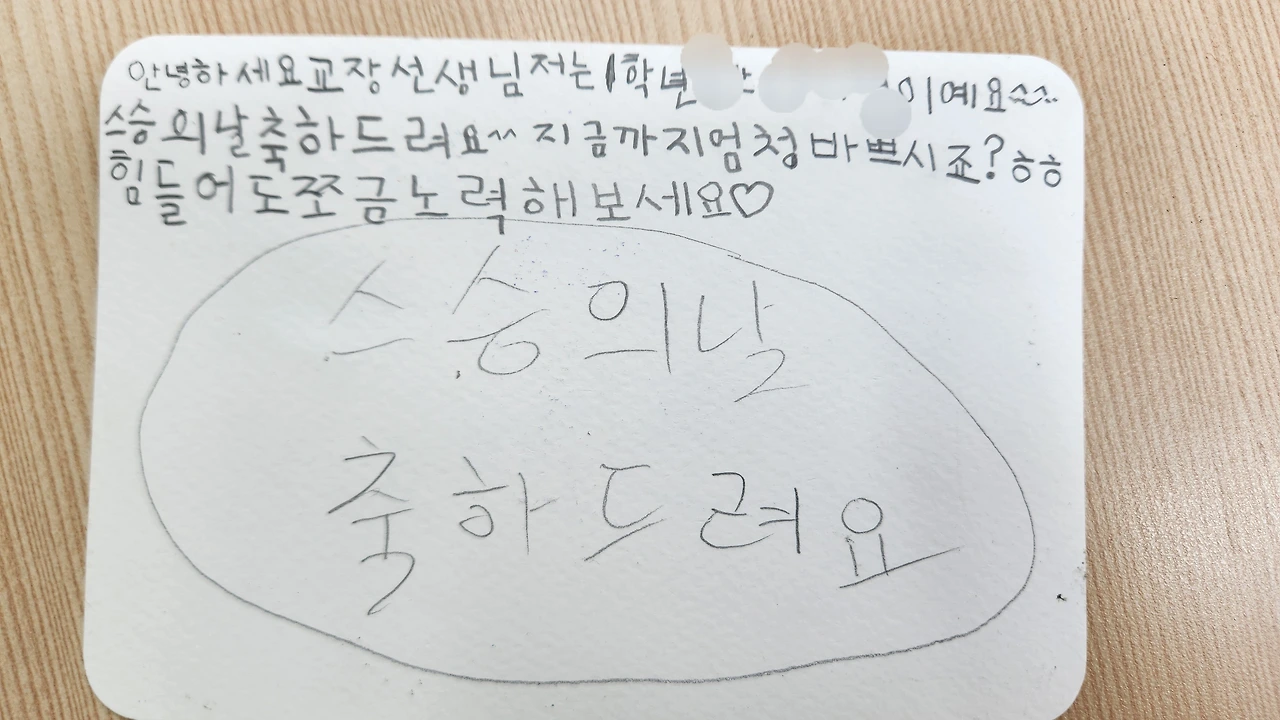 안녕하세요교장선생님저는1학년 이예요~~..
스승의날축하드려요~~ 지금까지엄청바쁘시죠?ㅎㅎ
힘들어도쪼금노력해보세요♡
스승의날
축하드려요